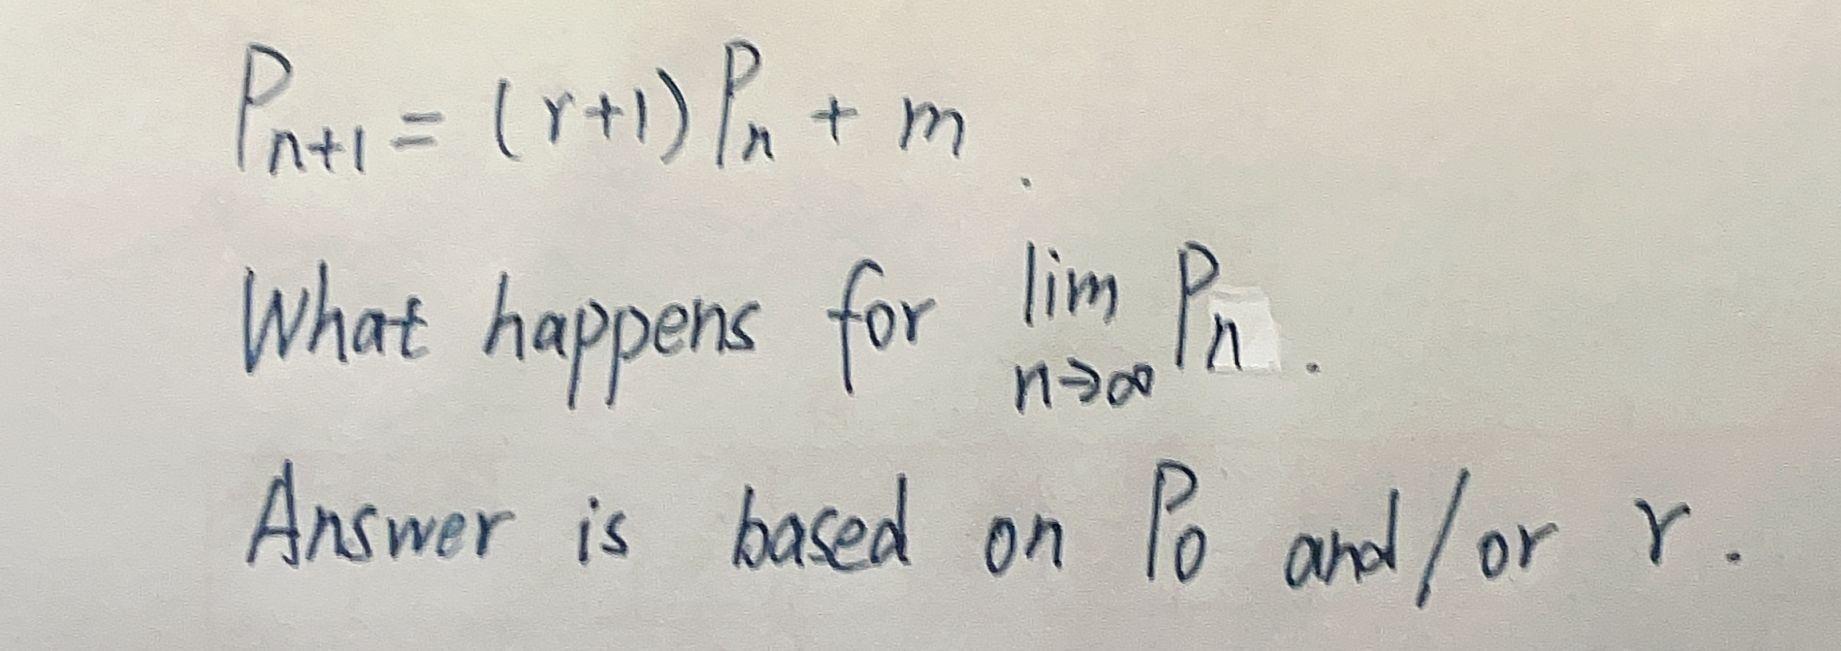 Pn+1 = (r+1) Pn + m.
What happens for lim n→∞ Pn.
Answer is based on P0 and/or r.